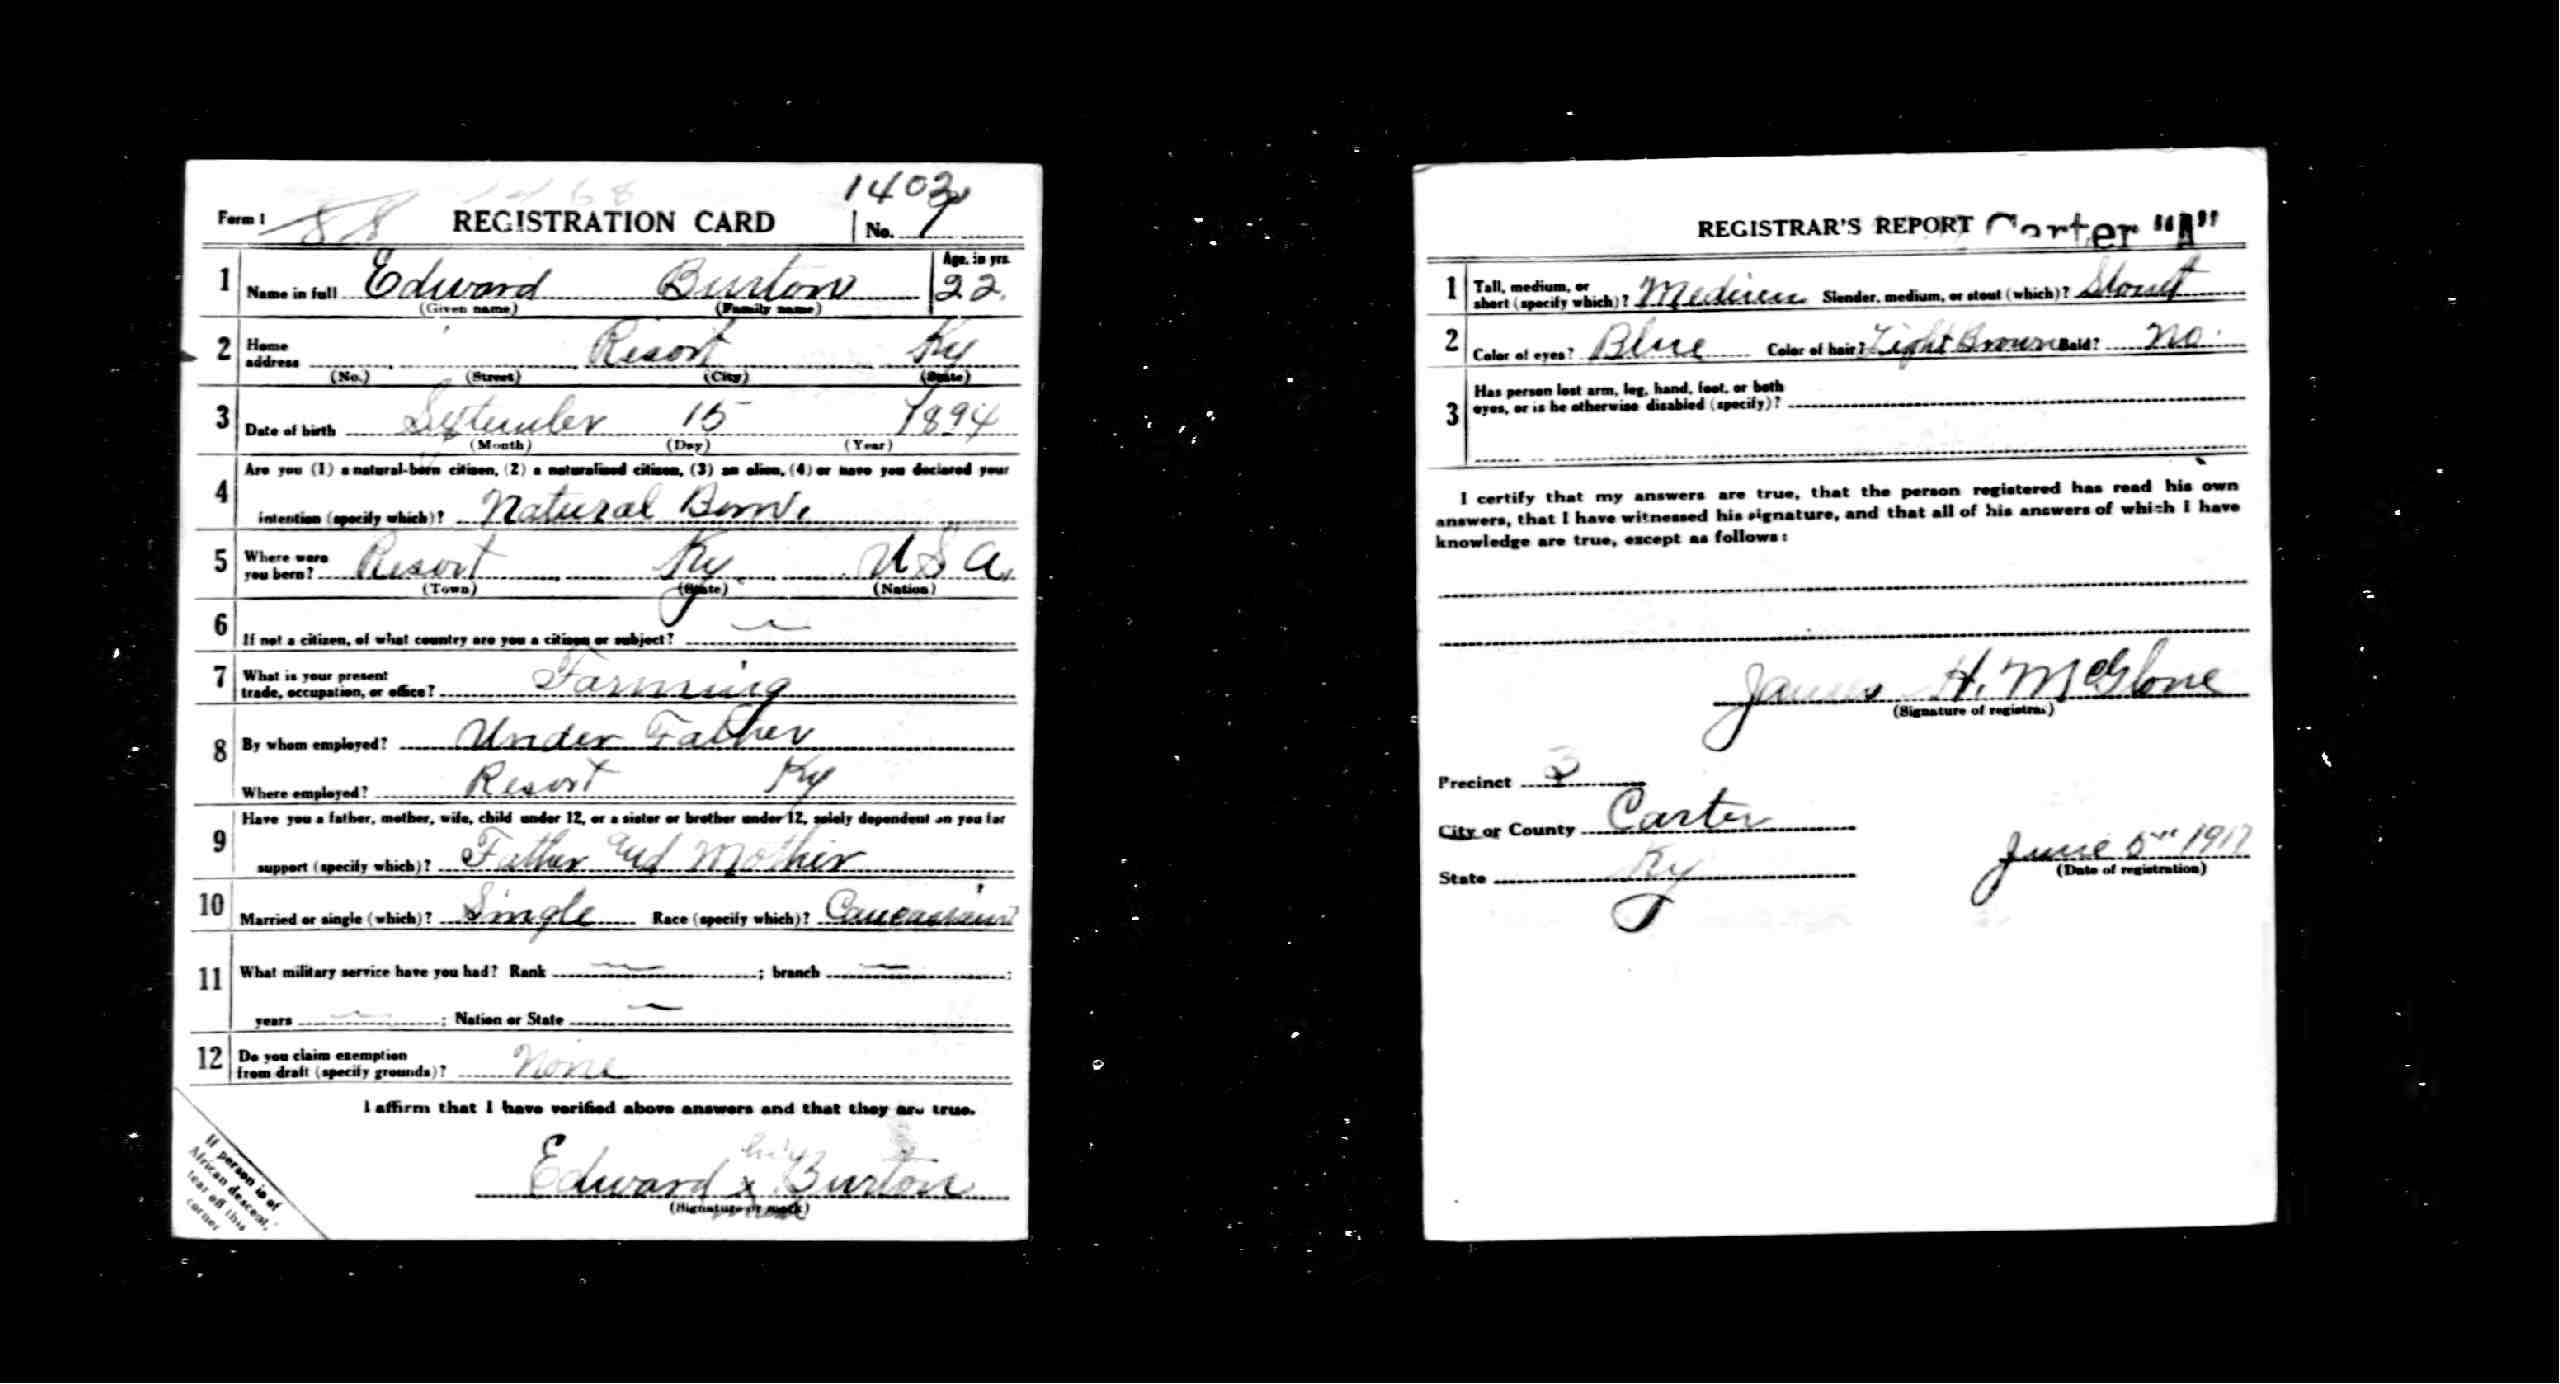 Form 1 88 REGISTRATION CARD No. 7
1403
1 Name in full Edward Burton Age, in yrs. 22
(Given name) (Family name)
2 Home address Resort Ky
(No.) (Street) (City) (State)
3 Date of birth September 15 1894
(Month) (Day) (Year)
4 Are you (1) a natural-born citizen, (2) a naturalized citizen, (3) an alien, (4) or have you declared your
intention (specify which)? Natural Born.
5 Where were you born? Resort Ky. U S A.
(Town) (State) (Nation)
6 If not a citizen, of what country are you a citizen or subject? —
7 What is your present
trade, occupation, or office? Farming
8 By whom employed? Under Father
Where employed? Resort Ky
9 Have you a father, mother, wife, child under 12, or a sister or brother under 12, solely dependent on you for
support (specify which)? Father and Mother
10 Married or single (which)? Single Race (specify which)? Caucasian
11 What military service have you had? Rank — ; branch — ;
years — ; Nation or State —
12 Do you claim exemption
from draft (specify grounds)? None
I affirm that I have verified above answers and that they are true.
his
Edward x Burton
(Signature or mark)
mark
If person is of
African descent,
tear off this
corner
REGISTRAR'S REPORT Carter "A"
1 Tall, medium, or
short (specify which)? Medium Slender, medium, or stout (which)? Stout
2 Color of eyes? Blue Color of hair? Light Brown Bald? No.
3 Has person lost arm, leg, hand, foot, or both
eyes, or is he otherwise disabled (specify)?
I certify that my answers are true, that the person registered has read his own
answers, that I have witnessed his signature, and that all of his answers of which I have
knowledge are true, except as follows:
James H. McGlone
(Signature of registrar)
Precinct 3
City or County Carter
State Ky
June 5th 1917
(Date of registration)